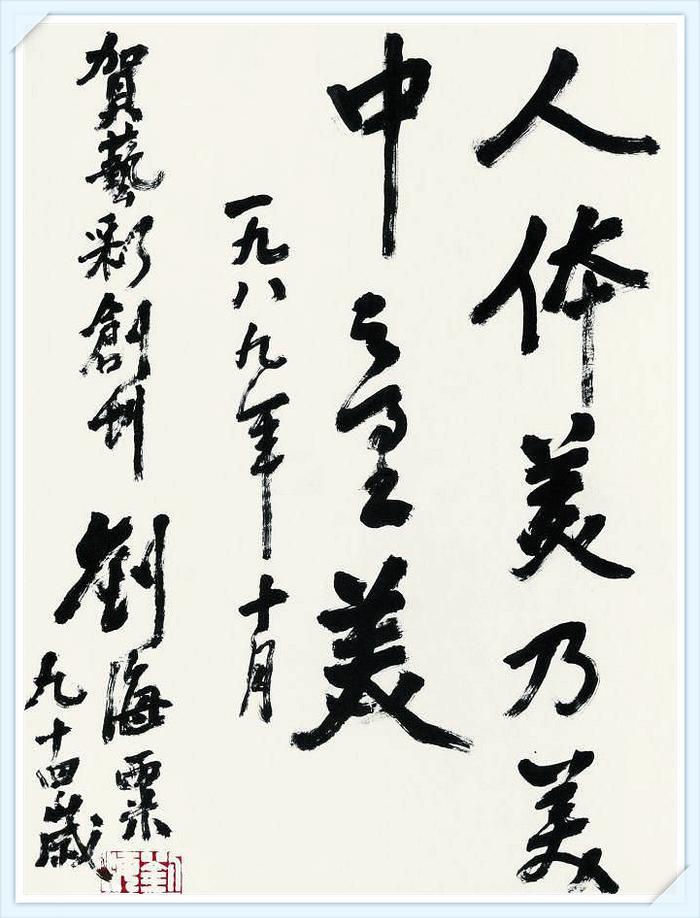 人体美乃美
中之至美
一九八九年十月
賀藝彩創刊 劉海粟
九十四歲